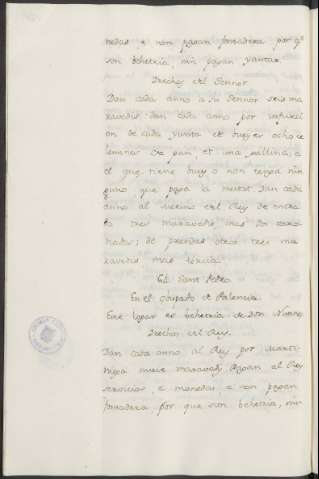 nedas e non pagan fonsadera por q.e
son behetria, nin pagan yantar
Drechos del Sennor
Dan cada anno a su Sennor seis ma
ravedis: dan cada anno por infurcion
de cada yunta de bueyes ocho ce
lemines de pan, et una gallina; e
el que tiene buey o non tenga nin
guno que paga la meitat. Dan cada
anno al merino del Rey de entra
da tres maravedis,
tres ma
ravedis mas tercia.
Sant Pedro
En el Obispado de Palencia.
Este logar es behetria de Don Nunno
Drechos del Rey.
Dan cada anno al Rey por marti
niega nueve maravedis, pagan al Rey
servicios, e monedas, e non pagan
fonsadera por que son behetria, nin